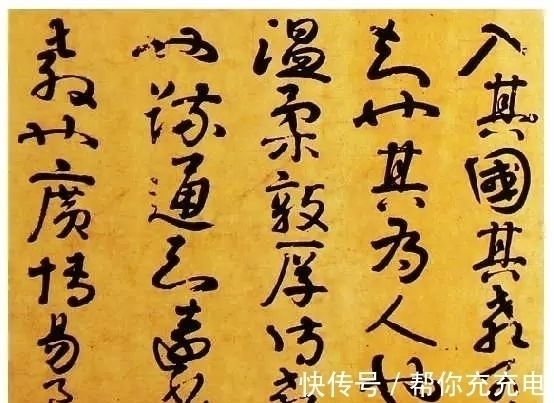 入其國其教可
知也其為人也
温柔敦厚詩教
也疏通知遠
教也廣博易
快传号 / 帮你充充电